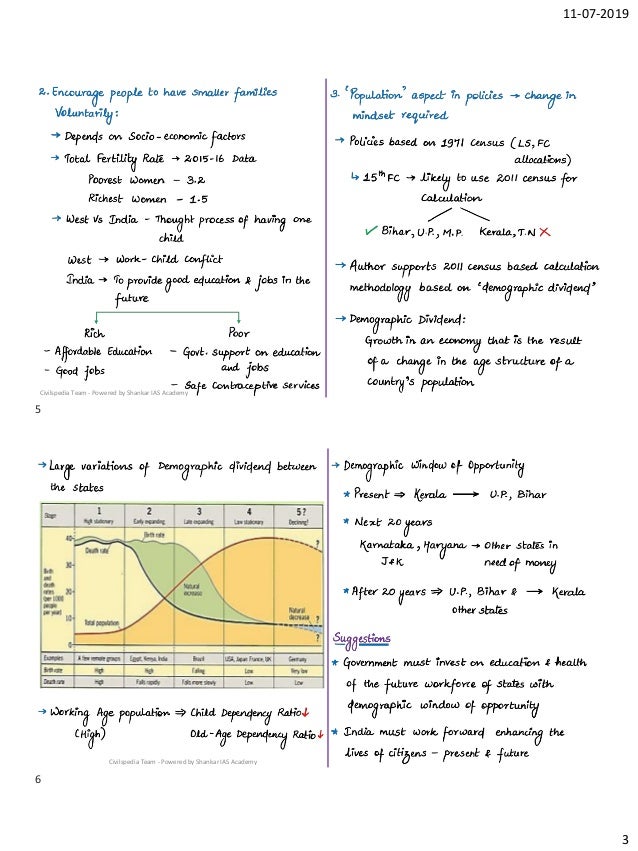 11-07-2019
2. Encourage people to have smaller families
Voluntarily:
→ Depends on Socio-economic factors
→ Total Fertility Rate → 2015-16 Data
Poorest Women - 3.2
Richest Women - 1.5
→ West Vs India - Thought process of having one
child
West → Work-Child Conflict
India → To provide good education & jobs in the
future
Rich
- Affordable Education
- Good jobs
Poor
- Govt. support on education
and jobs
- Safe Contraceptive services
Civilspedia Team - Powered by Shankar IAS Academy
3. "Population" aspect in policies → change in
mindset required
→ Policies based on 1971 Census (LS, FC
allocations)
↳ 15th FC → likely to use 2011 census for
Calculation
✓ Bihar, U.P., M.P. Kerala, T.N ✗
→ Author supports 2011 census based calculation
methodology based on "demographic dividend"
→ Demographic Dividend:
Growth in an economy that is the result
of a change in the age structure of a
country's population
5
→ Large variations of Demographic dividend between
the states
Stage 1 2 3 4 5?
High stationary Early expanding Late expanding Low stationary Declining?
Birth and death rates (per 1000 people per year)
40
30
20
10
0
Death rate
Birth rate
Natural increase
Total population
Natural decrease
?
?
?
Examples A few remote groups Egypt, Kenya, India Brazil USA, Japan France, UK Germany
Birth rate High High Falling Low Very low
Death rate High Falls rapidly Falls more slowly Low Low
→ Working Age population ⇒ Child Dependency Ratio↓
(High) Old-Age Dependency Ratio↓
Civilspedia Team - Powered by Shankar IAS Academy
→ Demographic Window of Opportunity
* Present ⇒ Kerala → U.P., Bihar
* Next 20 years
Karnataka, Haryana → Other states in
J&K need of money
* After 20 years ⇒ U.P., Bihar & → Kerala
other states
Suggestions
* Government must invest on education & health
of the future workforce of states with
demographic window of opportunity
* India must work forward enhancing the
lives of citizens - present & future
6
3